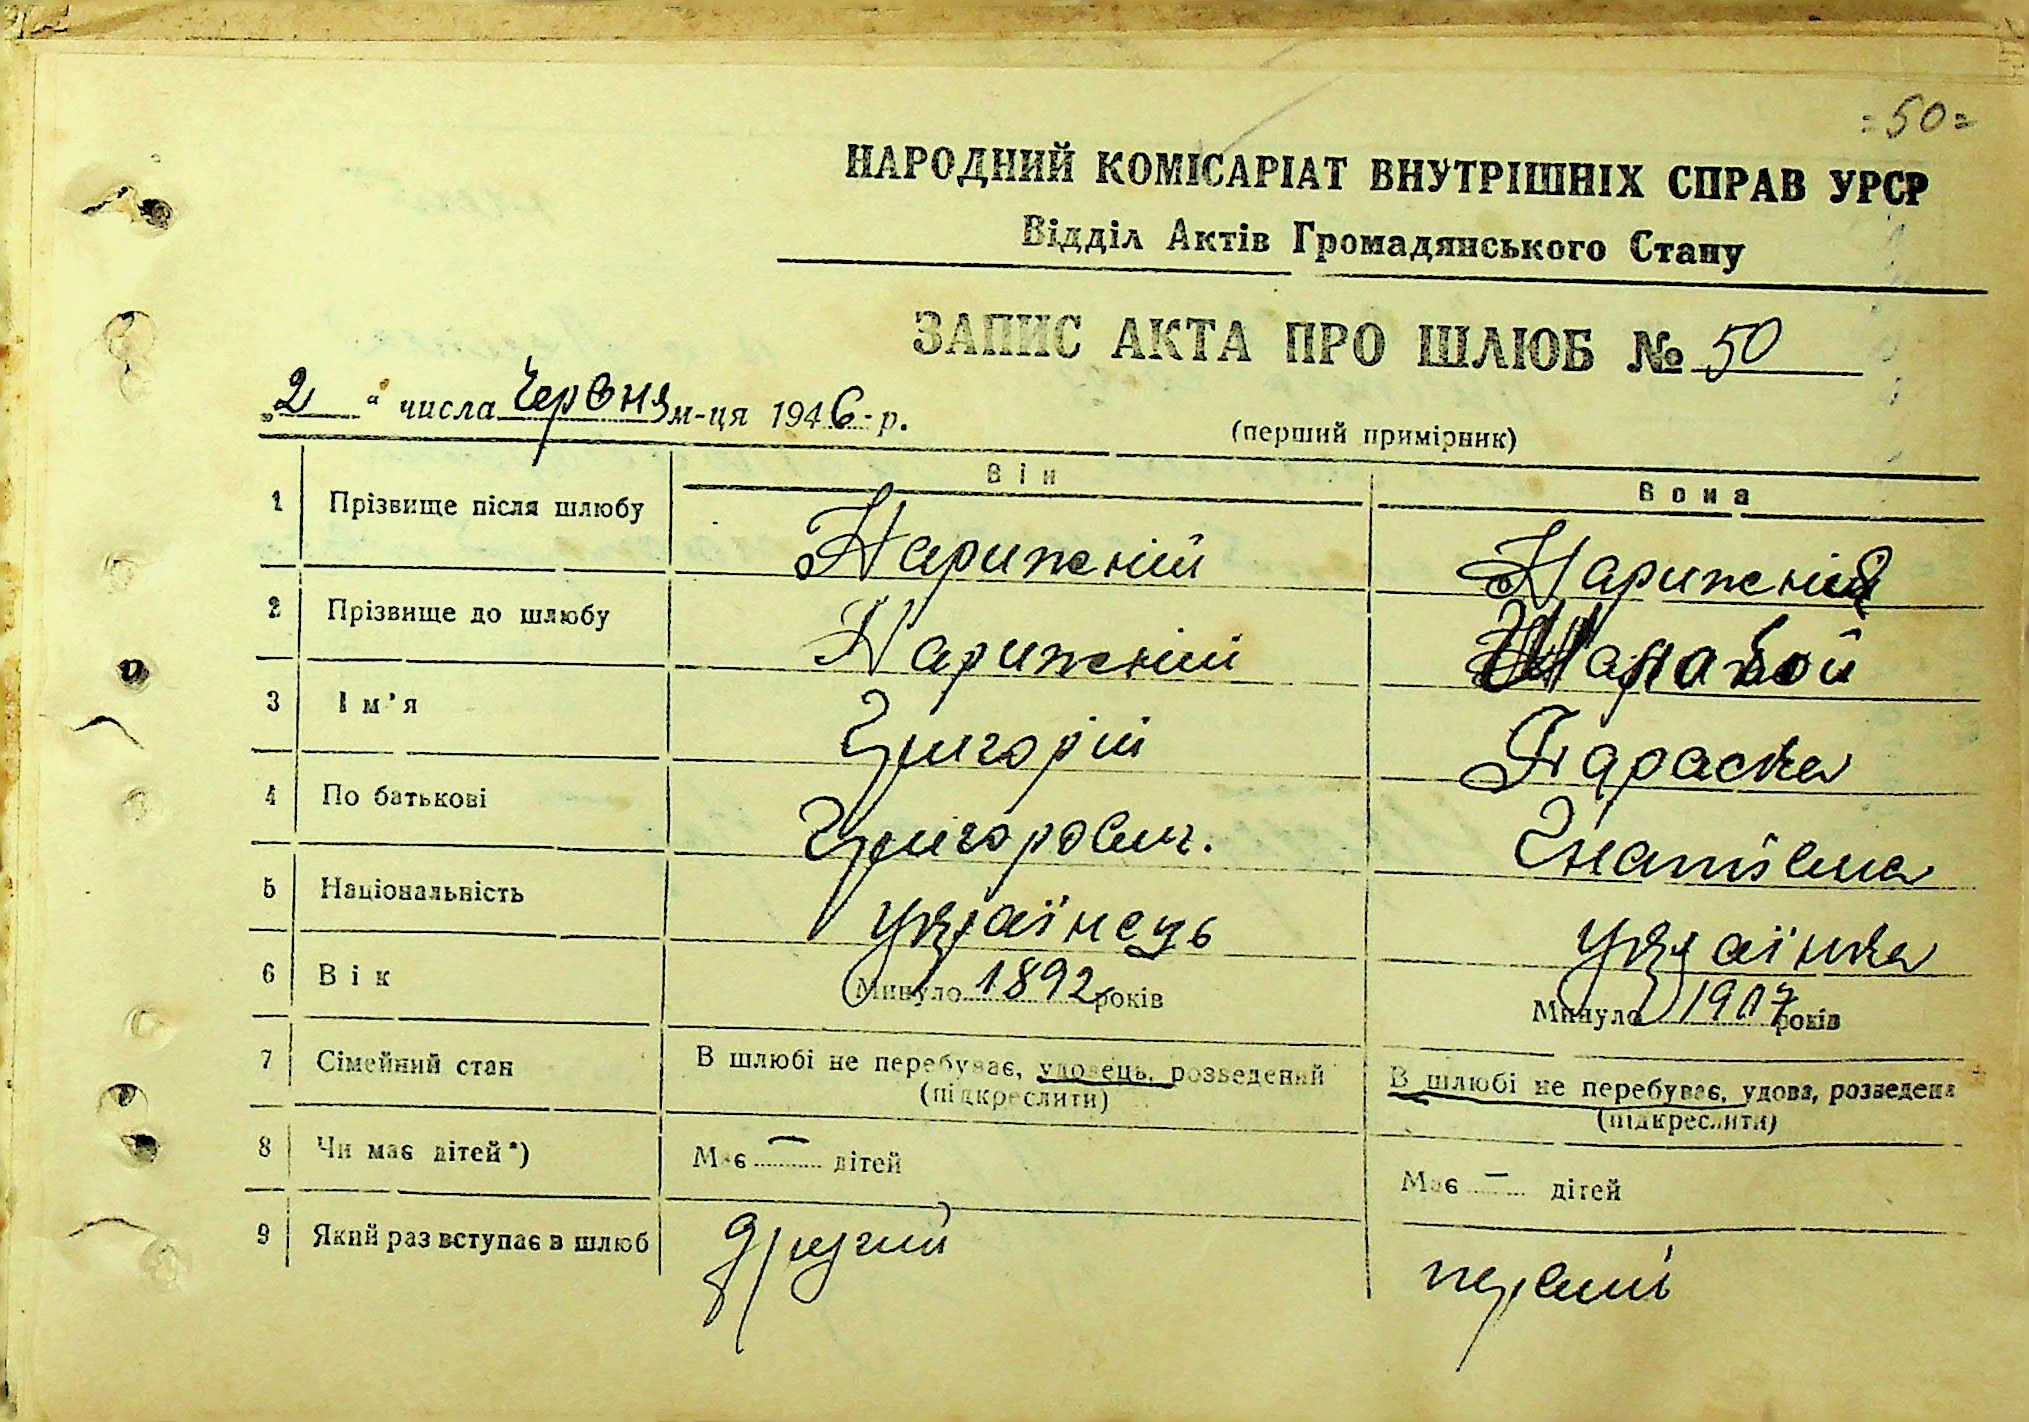 =50=
НАРОДНИЙ КОМІСАРІАТ ВНУТРІШНІХ СПРАВ УРСР
Відділ Актів Громадянського Стану
ЗАПИС АКТА ПРО ШЛЮБ № 50
„2“ числа Червня м-ця 1946 р.
(перший примірник)
Він Вона
1 Прізвище після шлюбу Нарижній Нарижній
2 Прізвище до шлюбу Нарижній
3 Ім'я Григорій Параска
4 По батькові Григорович. Гнатівна
5 Національність українець українка
6 Вік Минуло 1892 років Минуло 1907 років
7 Сімейний стан В шлюбі не перебуває, удовець, розведений В шлюбі не перебуває, удова, розведена
(підкреслити) (підкреслити)
8 Чи має дітей*) Має — дітей Має — дітей
9 Який раз вступає в шлюб другий первий